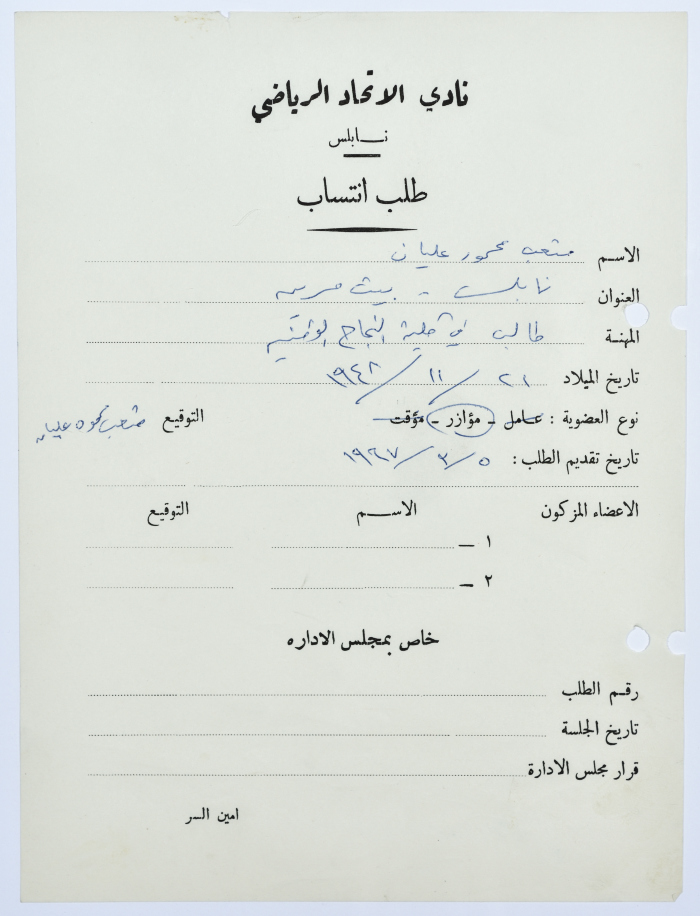 نادي الاتحاد الرياضي
نـــابلس
طلب انتساب
الاسـم متعب محمود عليان
العنوان نابلس - بيت
المهنـة طالب في كلية النجاح الوطنية
تاريخ الميلاد ٢١ / ١١ / ١٩٤٨
نوع العضوية : عـامل - مؤازر - مؤقت التوقيع متعب محمود عليان
تاريخ تقديم الطلب : ٥ / ٣ / ١٩٦٧
الاعضاء المزكون الاســـم التوقيع
١ -
٢ -
خاص بمجلس الاداره
رقـم الطلب
تاريخ الجلسة
قرار مجلس الادارة
امين السر